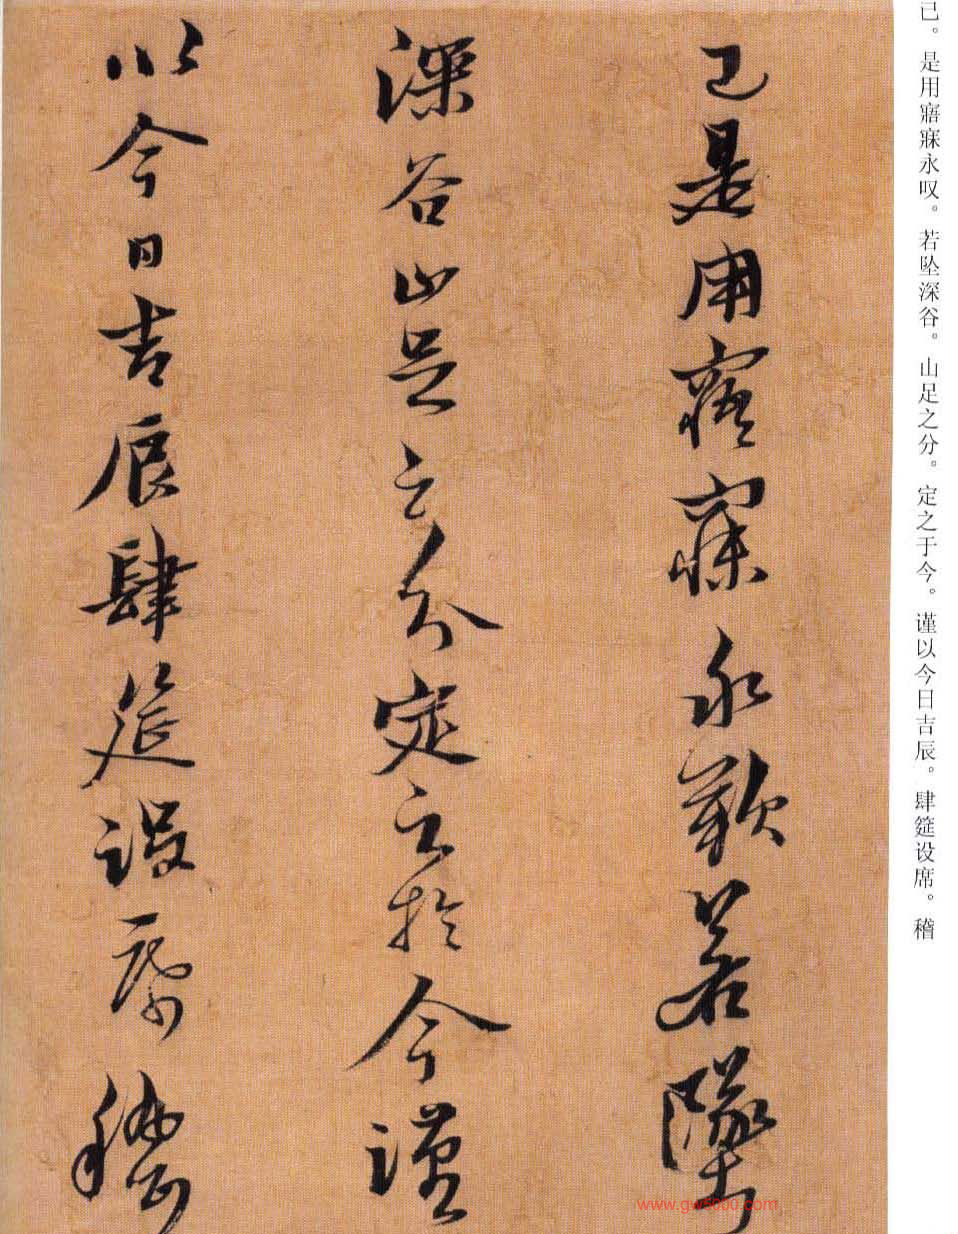 已。是用寤寐永叹。若坠深谷。山足之分。定之于今。谨以今日吉辰。肆筵设席。稽
已是用寤寐永歎若墜
深谷山足之分定之於今謹
以今日吉辰肆筵設席稽
www.gw5000.com